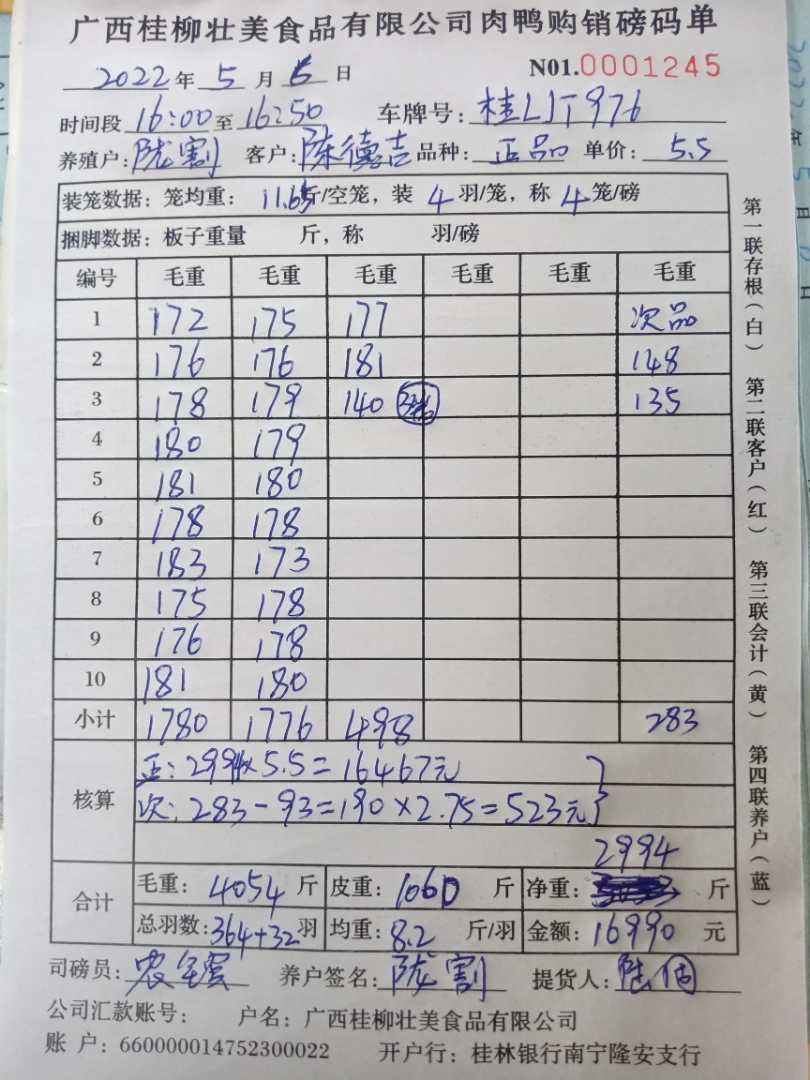 广西桂柳壮美食品有限公司肉鸭购销磅码单
2022年5月6日 N01.0001245
时间段16:00至16:50 车牌号:桂LJT976
养殖户:陇割 客户:陈德吉 品种:正品 单价:5.5
装笼数据:笼均重:11.65斤/空笼,装4羽/笼,称4笼/磅
捆脚数据:板子重量 斤,称 羽/磅
编号 毛重 毛重 毛重 毛重 毛重 毛重
1 172 175 177 次品
2 176 176 181 148
3 178 179 140 135
4 180 179
5 181 180
6 178 178
7 183 173
8 175 178
9 176 178
10 181 180
小计 1780 1776 498 283
正:2994×5.5=16467元
核算 次:283-93=190×2.75=523元
2994
合计 毛重:4054斤 皮重:1060斤 净重: 斤
总羽数:364+32羽 均重:8.2斤/羽 金额:16990元
司磅员: 养户签名:陇割 提货人:陆
公司汇款账号: 户名:广西桂柳壮美食品有限公司
账 户:660000014752300022 开户行:桂林银行南宁隆安支行
第一联存根(白) 第二联客户(红) 第三联会计(黄) 第四联养户(蓝)